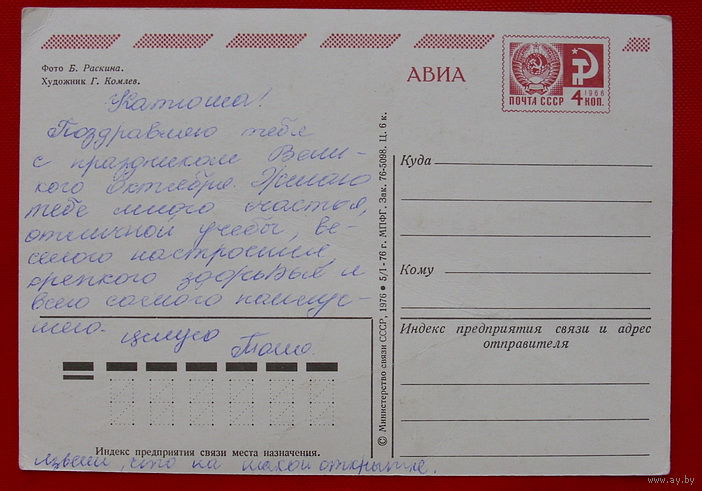 Фото Б. Раскина.
Художник Г. Комлев.
АВИА
ПОЧТА СССР
1966
4 КОП.
Катюша!
Поздравляю тебя
с праздником Вели-
кого Октября. Желаю
тебе много счастья,
отличной учебы, ве-
селого настроения,
крепкого здоровья и
всего самого наилуч-
шего.
целую
Индекс предприятия связи места назначения.
что на открытке.
© Министерство связи СССР, 1976 ● 5/I-76 г. МПФГ. Зак. 76-5098. Ц. 6 к.
Куда
Кому
Индекс предприятия связи и адрес
отправителя
www.ay.by